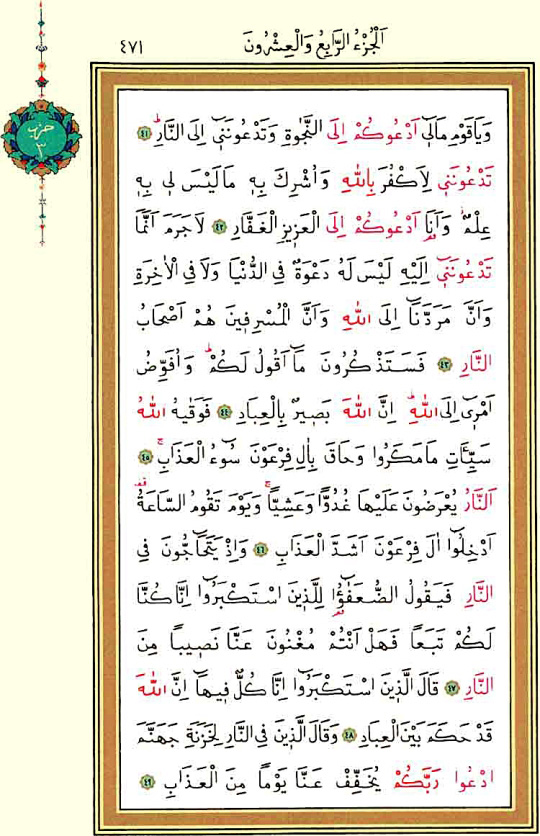 اَلْجُزْءُ الرَّابِعُ وَالْعِشْرُونَ
٤٧١
حزب
٣
وَيَاقَوْمِ مَالٓي اَدْعُوكُمْ اِلَى النَّجٰوةِ وَتَدْعُونَنٓي اِلَى النَّارِۜ ٤١
تَدْعُونَنٓي لِاَكْفُرَ بِاللّٰهِ وَاُشْرِكَ بِهٖ مَالَيْسَ لٖي بِهٖ
عِلْمٌۘ وَاَنَا۬ اَدْعُوكُمْ اِلَى الْعَزٖيزِ الْغَفَّارِ ٤٢ لَاجَرَمَ اَنَّمَا
تَدْعُونَنٓي اِلَيْهِ لَيْسَ لَهُ دَعْوَةٌ فِي الدُّنْيَا وَلَا فِي الْاٰخِرَةِ
وَاَنَّ مَرَدَّنَٓا اِلَى اللّٰهِ وَاَنَّ الْمُسْرِفٖينَ هُمْ اَصْحَابُ
النَّارِ ٤٣ فَسَتَذْكُرُونَ مَٓا اَقُولُ لَكُمْۜ وَاُفَوِّضُ
اَمْرٖٓي اِلَى اللّٰهِۜ اِنَّ اللّٰهَ بَصٖيرٌ بِالْعِبَادِ ٤٤ فَوَقٰيهُ اللّٰهُ
سَيِّـَٔاتِ مَامَكَرُوا وَحَاقَ بِاٰلِ فِرْعَوْنَ سُٓوءُ الْعَذَابِۚ ٤٥
اَلنَّارُ يُعْرَضُونَ عَلَيْهَا غُدُوًّا وَعَشِيًّاۚ وَيَوْمَ تَقُومُ السَّاعَةُ۠
اَدْخِلُٓوا اٰلَ فِرْعَوْنَ اَشَدَّ الْعَذَابِ ٤٦ وَاِذْ يَتَحَٓاجُّونَ فِي
النَّارِ فَيَقُولُ الضُّعَفٰٓؤُ۬ا لِلَّذٖينَ اسْتَكْبَرُٓوا اِنَّا كُنَّا
لَكُمْ تَبَعاً فَهَلْ اَنْتُمْ مُغْنُونَ عَنَّا نَصٖيباً مِنَ
النَّارِ ٤٧ قَالَ الَّذٖينَ اسْتَكْبَرُٓوا اِنَّا كُلٌّ فٖيهَٓا اِنَّ اللّٰهَ
قَدْ حَكَمَ بَيْنَ الْعِبَادِ ٤٨ وَقَالَ الَّذٖينَ فِي النَّارِ لِخَزَنَةِ جَهَنَّمَ
ادْعُوا رَبَّكُمْ يُخَفِّفْ عَنَّا يَوْماً مِنَ الْعَذَابِ ٤٩